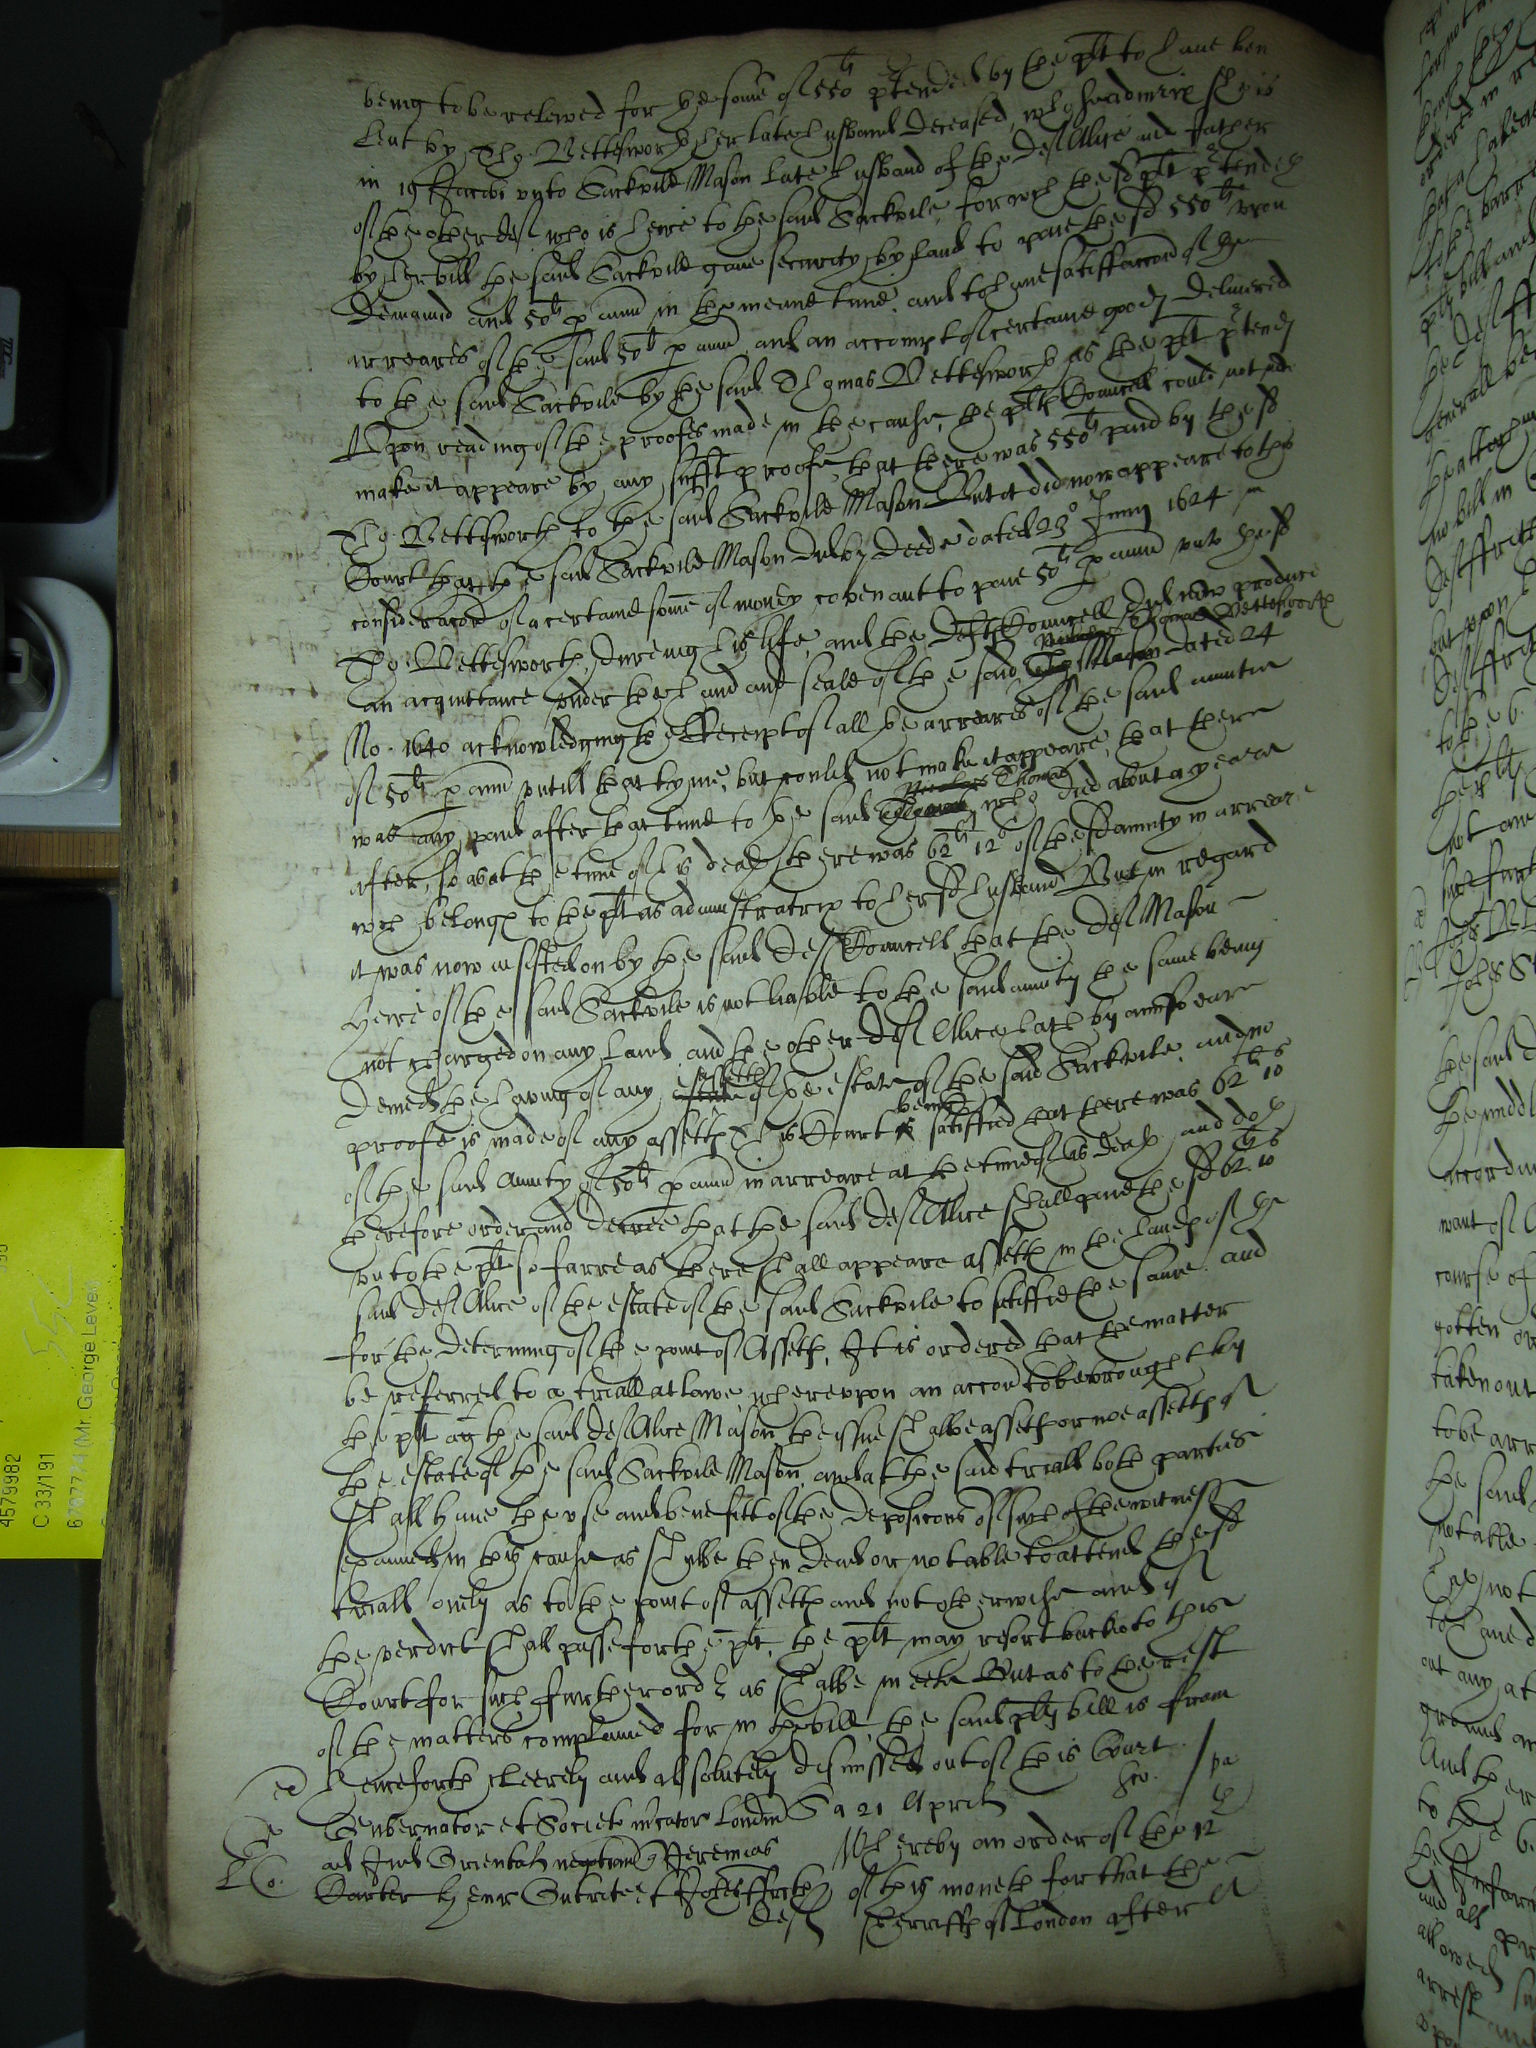 being to be releived for the some of 550li ptended by the plt to have ben
lent by Tho: Bettesworth her late husband deceased, whose admrix she is
in 19 Jacobi unto Sackvile Mason late husband of the deft Alice and father
of the other deft who is heire to the said Sackvile, for wch the sd plt ptendeth
by her bill the said Sackvile gave security by land to paie the sd 550li upon
demaund and 50li p ann in the meane time, and to have satisfaccon of the
arreares of the said 50li p ann, and an accompt of certaine goods delivered
to the said Sackvile by the said Thomas Bettesworth as the plt ptends
Upon reading of the proofes made in the cause, the plts Councell could not
make it appeare by any sufft proofe that there was 550li paid by the sd
Tho: Bettesworth to the said Sackvile Mason But it did now appeare to this
Court that the said Sackvile Mason did by deede dated 23o Junij 1624 in
consideracon of a certaine some of money covenant to paie 50li p annu unto the sd
Tho: Bettesworth dureing his life, and the defts Councell did now produce
Thomas Bettesworth
an acquittance under the hand and seale of the said Mason dated 24o
No: 1640 acknowledging the Receipt of all the arreares of the said annuitie
of 50li p ann untill that tyme, but could not make it appeare that there
Thomas
was any paid after that time to the said who died about a yeare
after, so as at the time of his death there was 62li 10s of the sd annuity in arreare
wch belongs to the plt as administratrix to her sd husband But in regard
it was now insisted on by the said defts Councell that the deft Mason
heire of the said Sackvile is not liable to the said annuity the same being
not charged on any land and the other deft Alice hath by answeare
assetts
denied the having of any estate of the estate of the said Sackvile, and no
being
proofe is made of any assetts This Court is satisfied that there was 62li 10s
of the said Anuity of 50li p annu in arreare at the time of his death and doth
therefore order and decree that the said deft Alice shall paie the sd 62li 10s
unto the plt so farre as there shall appeare assetts in the hands of the
said deft Alice of the estate of the said Sackvile to satisfie the same. and
for the determing of the point of Assetts, It is ordered that the matter
be referred to a triall at lawe, whereupon an accon to be brought by
the plt agt the said deft Alice Mason the issue shalbe assetts or noe assetts of
the estate of the said Sackvile Mason, and at the said triall both parties
shall have the use and benefitt of the deposicons of such of the witnesses
examined in this cause as shalbe then dead or not able to attend the sd
triall only as to the point of assetts and not otherwise and if
the verdict shall passe for the plt, the plt may resort back to this
Court for such further order as shalbe meete But as to the rest
of the matters complained for in the bill, the said plts bill is from
henceforth cleerely and absolutely dismissed out of this Court
Gubernator et Societ mcator London Sa 21 Aprilis
ad Ind Oriental Jeremias Whereby an order of the 12th
Henr deft of this moneth for that the
Sherriffs of London after
45799982
C 33/191
(Mr. George Leven